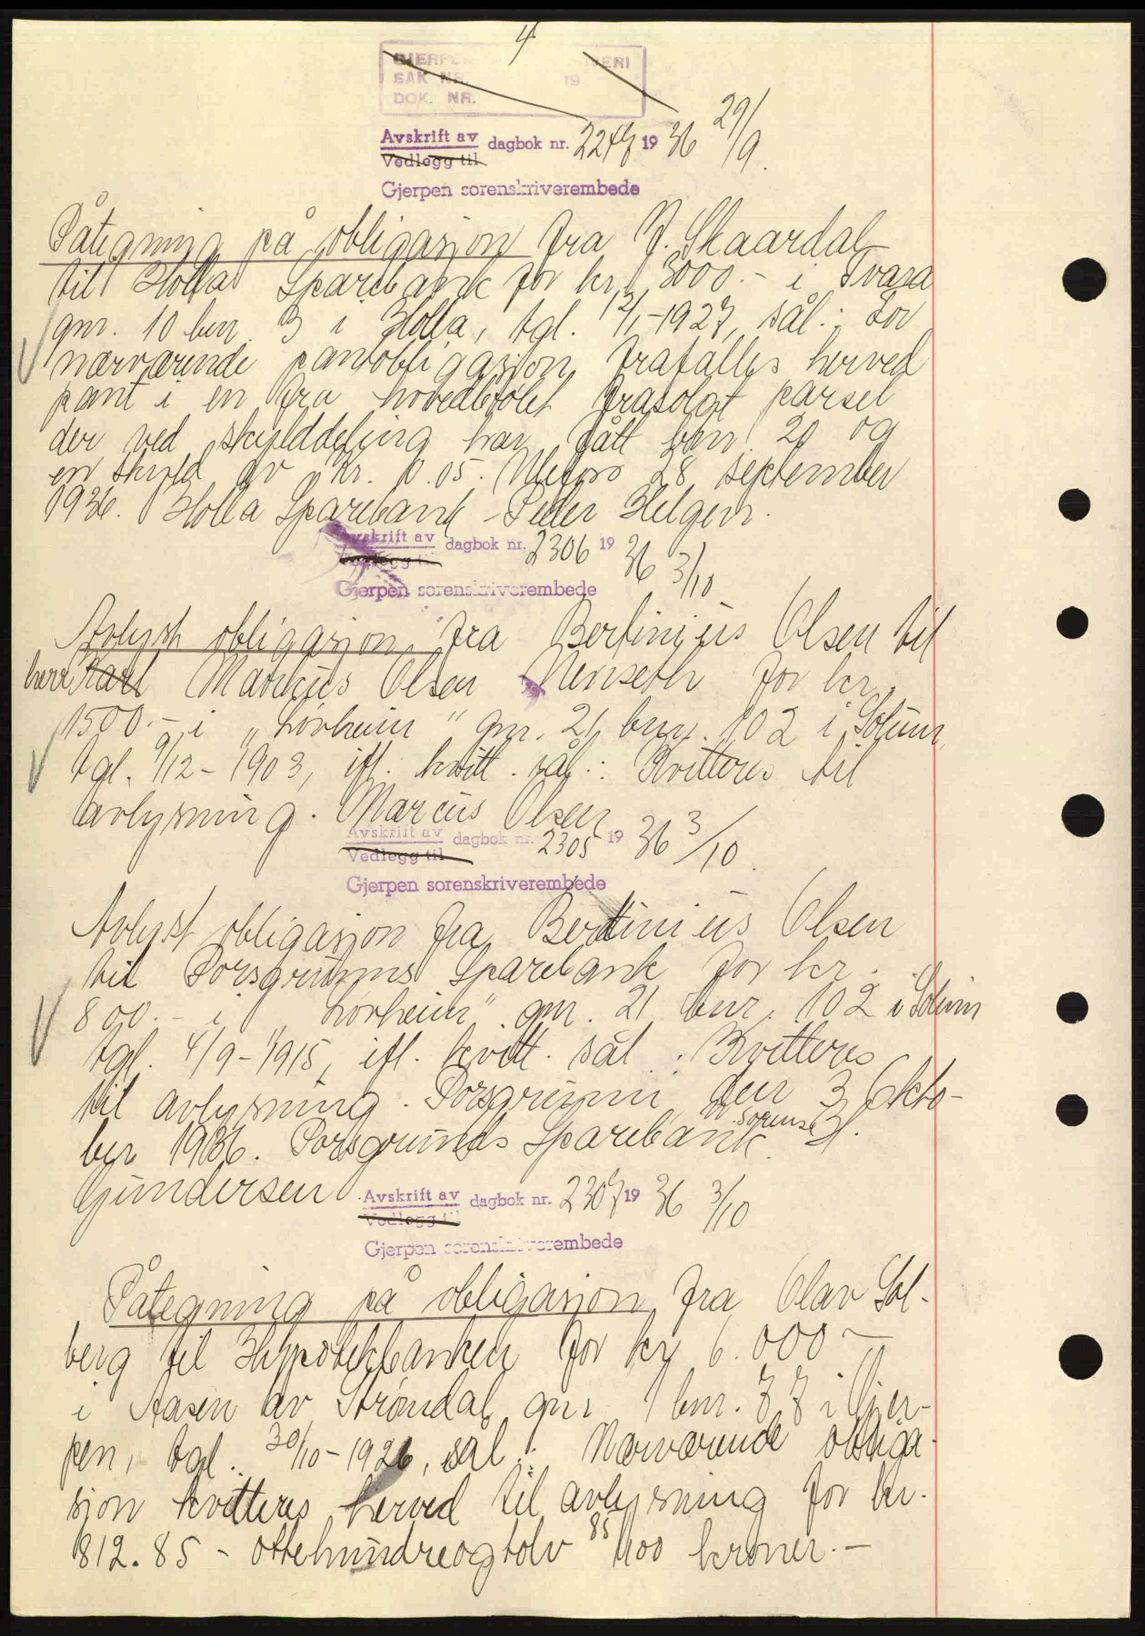 4
GJERPEN
SAK NR. 19
DOK. NR.
Avskrift av dagbok nr. 2247 19 36 29/9.
Vedlegg til
Gjerpen sorenskriverembede
Påtegning på obligasjon fra J. Skaardal
til Holla Sparebank for kr. 3000.- i Svara
gnr. 10 bnr. 3 i Holla, tgl. 12/1-1927, sål.: For
nærværende panobligasjon frafalles herved
pant i en fra hovedbrølet frasolgt parsel
der ved skylddeling har fått bnr. 20 og
en skyld av kr. 0.05. Ulefoss 28 september
1936. Holla Sparebank - Peder Helgen.
Avskrift av dagbok nr. 2306 19 36 3/10
Vedlegg til
Gjerpen sorenskriverembede
Avlyst obligasjon fra Bertinius Olsen til
herr Karl Markus Olsen Nenseth for kr.
1500.- i "Lovheim" gnr. 21 bnr. 102 i Solum,
tgl. 9/12-1903, ifl. kvitt. sål.: Kvitteres til
avlysning. Marcus Olsen
Avskrift av dagbok nr. 2305 19 36 3/10.
Vedlegg til
Gjerpen sorenskriverembede
Avlyst obligasjon fra Bertinius Olsen
til Porsgrunns Sparebank for kr.
800.- i "Lovheim" gnr. 21 bnr. 102 i Solum
tgl. 4/9-1915, ifl. kvitt. sål.: Kvitteres
til avlysning. Porsgrunn den 3 Okto-
ber 1936. Porsgrunds Sparebank. H.
Gundersen
Avskrift av dagbok nr. 2307 19 36 3/10
Vedlegg til
Gjerpen sorenskriverembede
Påtegning på obligasjon fra Olav Sol-
berg til Hypotekbanken for kr 6.000-
i Aasen av Strømdal gnr. 1 bnr. 77 i Gjer-
pen, tgl. 30/10-1926, sål.: Nærværende obliga-
sjon kvitteres herved til avlysning for kr.
812.85 - ottehundreogtolv 85/100 kroner.-